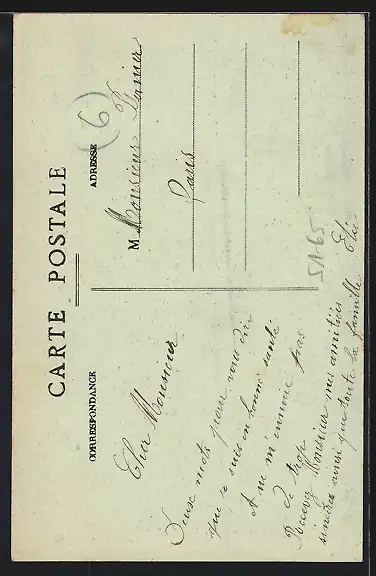 CARTE POSTALE
CORRESPONDANCE
ADRESSE
(6)
Cher Monsieur
Deux mots pour vous dire
que je suis en bonne santé
et ne m'ennuie pas
de trop
Recevez Monsieur mes amitiés
sincères ainsi que toute la famille
Elie
M Monsieur
Paris
5165